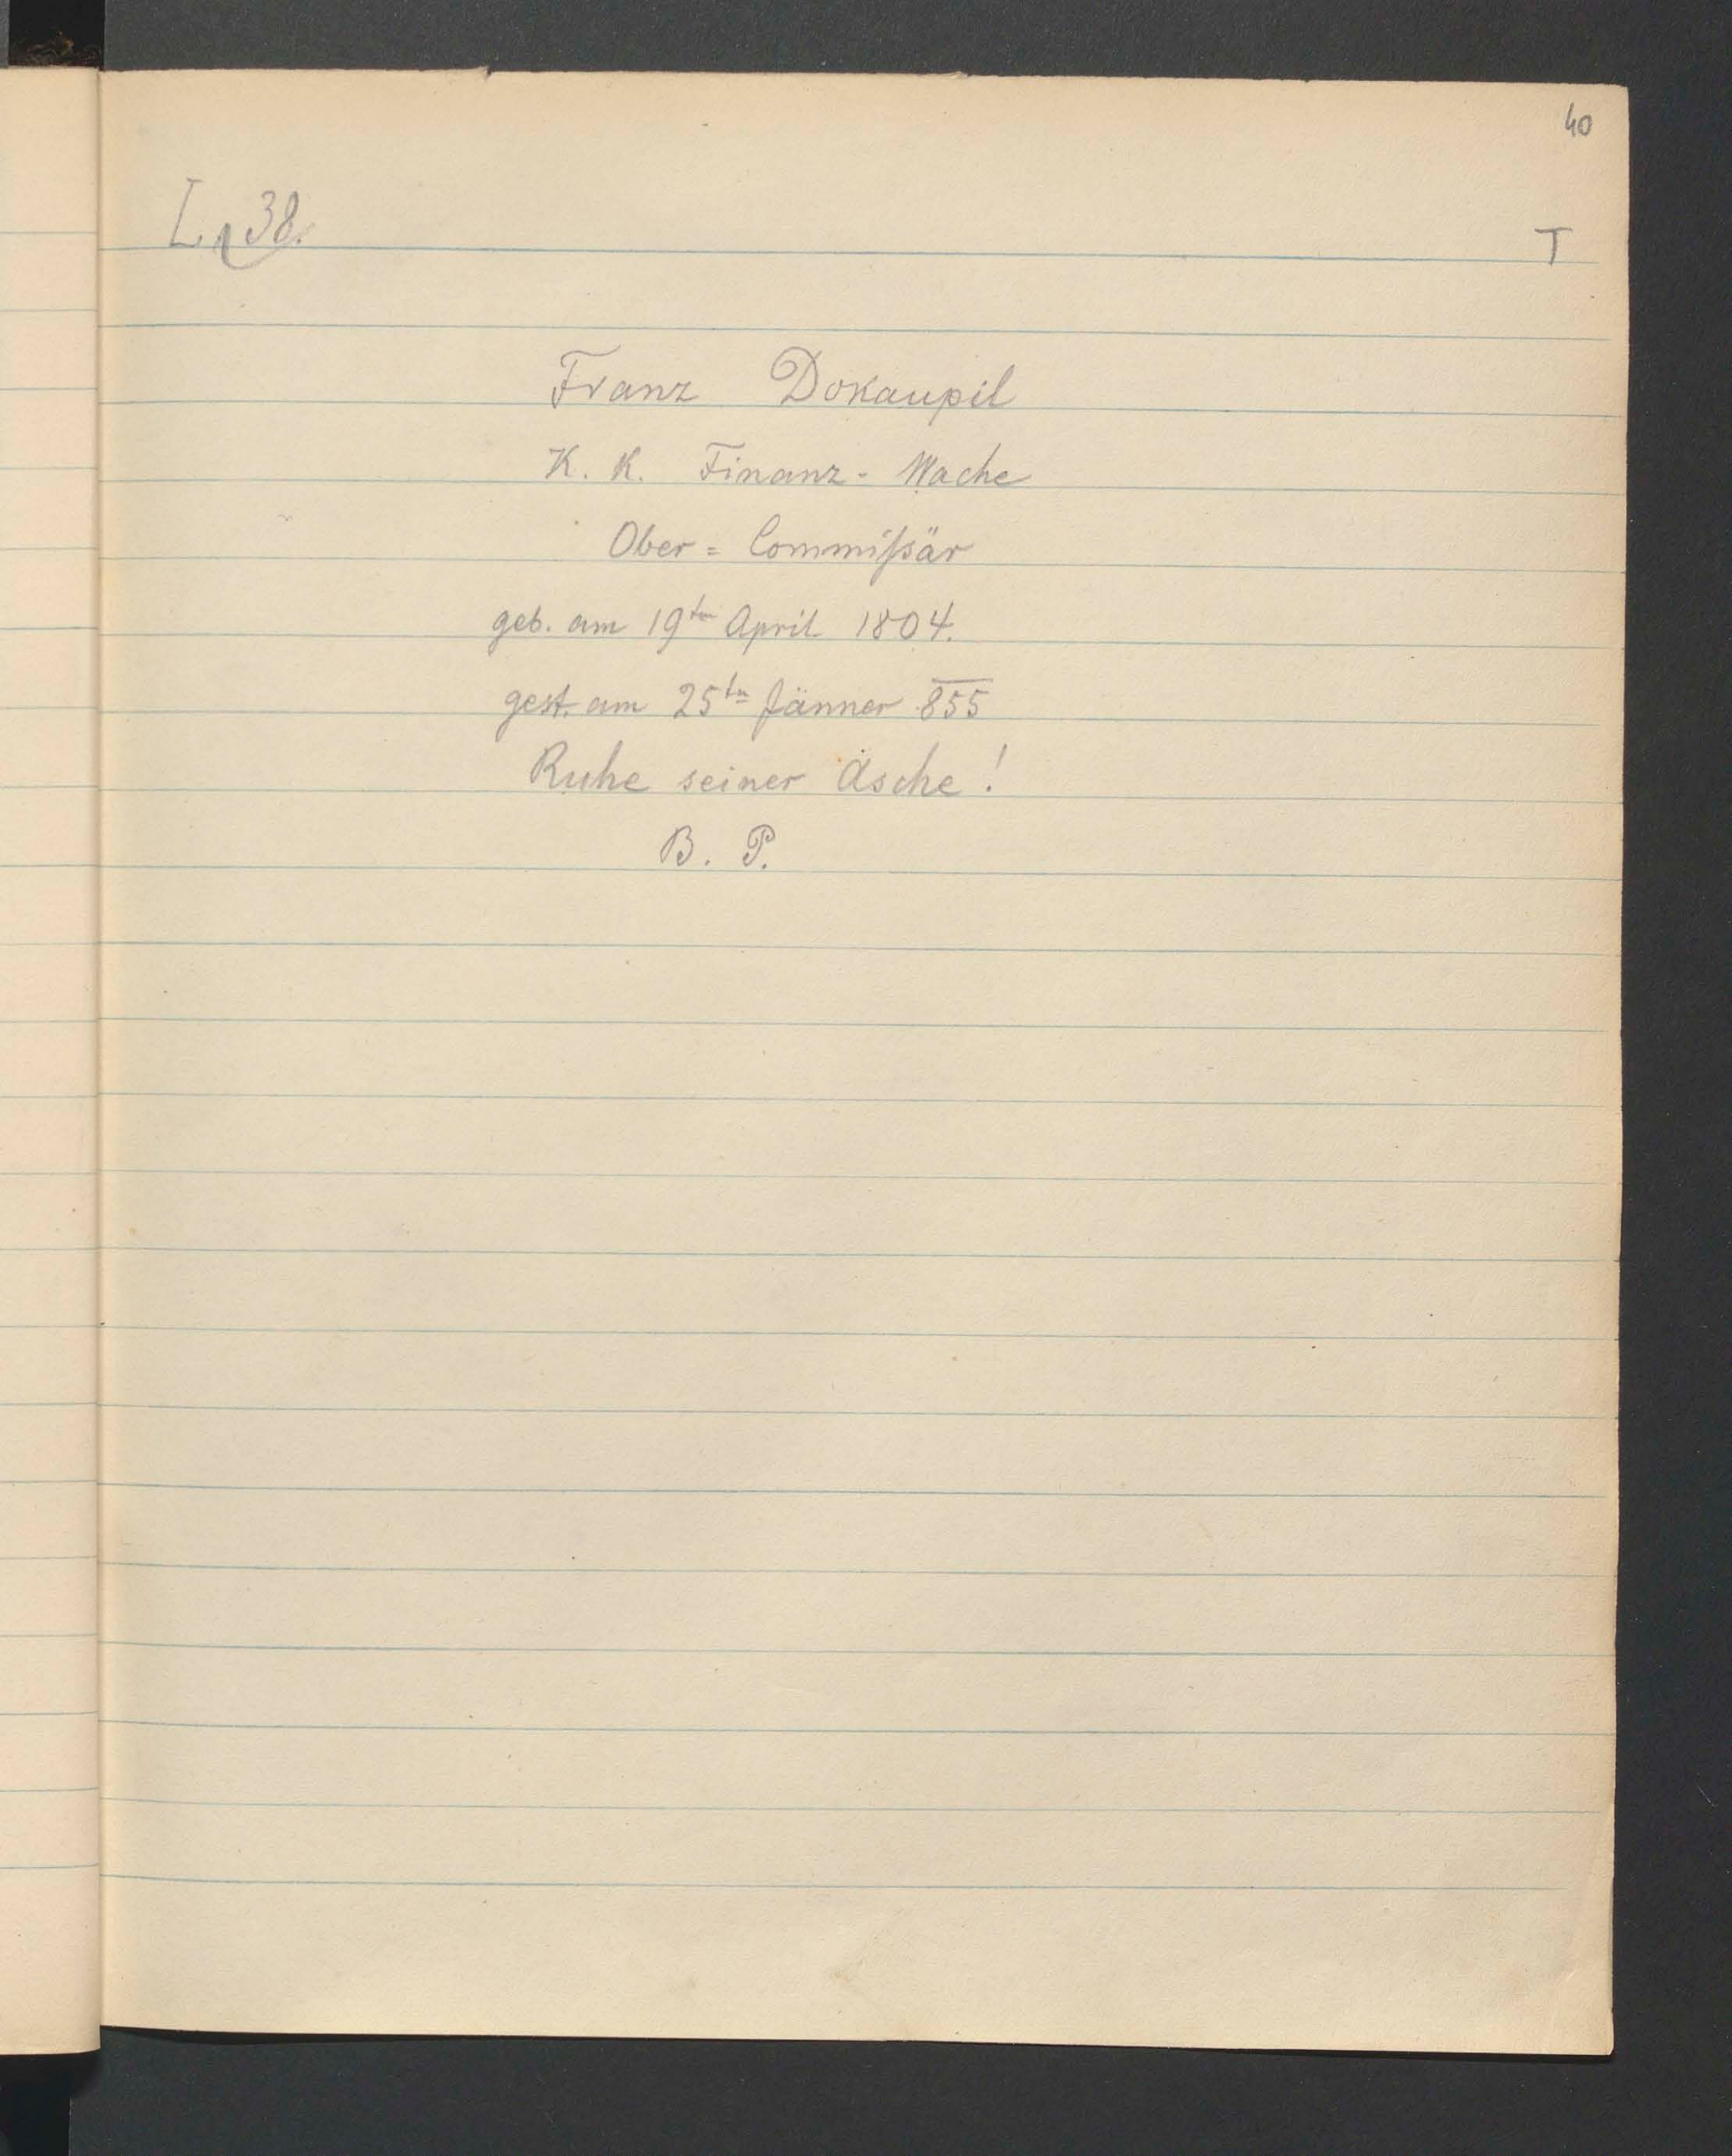 40
L. 38.
T
Franz Dokaupil
K. K. Finanz - Wache
Ober = Commißär
geb. am 19ten April 1804.
gest. am 25ten Jänner 855
Ruhe seiner Asche!
B. P.